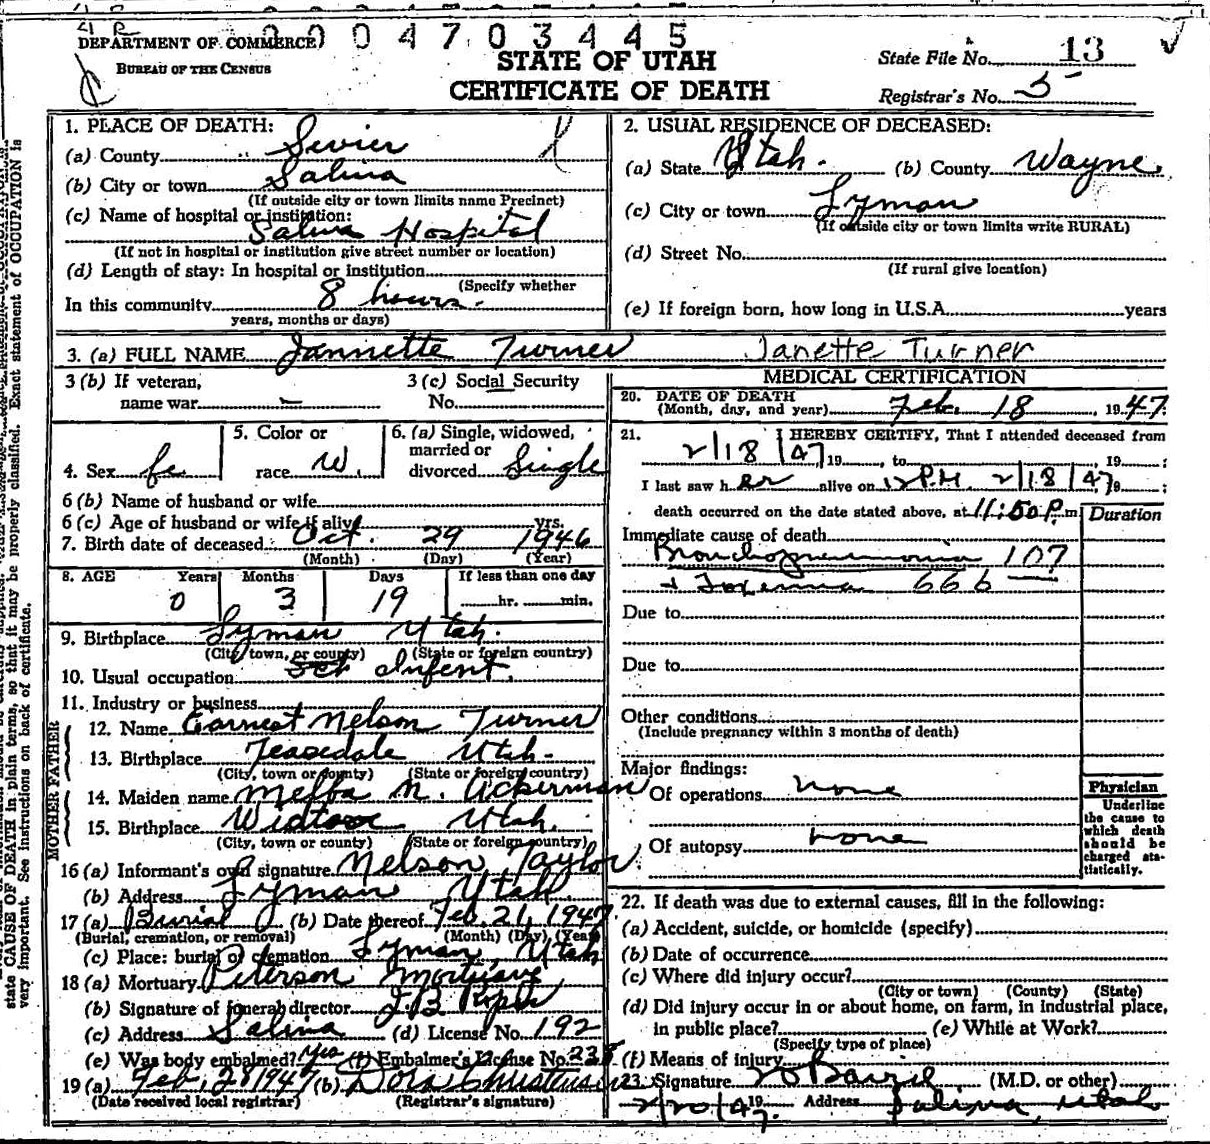 0 0 0 4 7 0 3 4 4 5
DEPARTMENT OF COMMERCE
BUREAU OF THE CENSUS
STATE OF UTAH
CERTIFICATE OF DEATH
State File No. 13
Registrar's No. 5
1. PLACE OF DEATH:
(a) County Sevier
(b) City or town Salina
(If outside city or town limits name Precinct)
(c) Name of hospital or institution:
Salina Hospital
(If not in hospital or institution give street number or location)
(d) Length of stay: In hospital or institution
(Specify whether
In this community 8 hours.
years, months or days)
2. USUAL RESIDENCE OF DECEASED:
(a) State Utah. (b) County Wayne
(c) City or town Lyman
(If outside city or town limits write RURAL)
(d) Street No.
(If rural give location)
(e) If foreign born, how long in U.S.A. years
3. (a) FULL NAME Jannette Turner Janette Turner
3 (b) If veteran, name war –
3 (c) Social Security No.
4. Sex fe
5. Color or race W.
6. (a) Single, widowed, married or divorced Single
6 (b) Name of husband or wife
6 (c) Age of husband or wife if alive yrs.
7. Birth date of deceased: Oct. 29 1946
(Month) (Day) (Year)
8. AGE Years Months Days If less than one day
0 3 19 hr. min.
9. Birthplace Lyman Utah.
(City, town, or county) (State or foreign country)
10. Usual occupation Infent.
11. Industry or business
FATHER
12. Name Earnest Nelson Turner
13. Birthplace Teasedale Utah.
(City, town or county) (State or foreign country)
MOTHER
14. Maiden name Melba N. Ackerman
15. Birthplace Widtsoe Utah.
(City, town or county) (State or foreign country)
16 (a) Informant's own signature Nelson Taylor
(b) Address Lyman Utah.
17 (a) Burial (b) Date thereof Feb. 21, 1947
(Burial, cremation, or removal) (Month) (Day) (Year)
(c) Place: burial or cremation Lyman, Utah
18 (a) Mortuary Peterson Mortuary
(b) Signature of funeral director J. B.
(c) Address Salina (d) License No. 192
(e) Was body embalmed? Yes (f) Embalmer's License No. 23
19 (a) Feb. 28 1947 (b) Dora Christensen
(Date received local registrar) (Registrar's signature)
MEDICAL CERTIFICATION
20. DATE OF DEATH
(Month, day, and year) Feb. 18, 1947
21. I HEREBY CERTIFY, That I attended deceased from
2/18/47 19 , to , 19 ;
I last saw her alive on 12 P.M. 2/18/47 19 ;
death occurred on the date stated above, at 11:50 P. m.
Duration
Immediate cause of death
Bronchopneumonia 107
+ Toxemia 666
Due to
Due to
Other conditions
(Include pregnancy within 3 months of death)
Major findings:
Of operations none
Of autopsy none
Physician
Underline
the cause to
which death
should be
charged sta-
tistically.
22. If death was due to external causes, fill in the following:
(a) Accident, suicide, or homicide (specify)
(b) Date of occurrence
(c) Where did injury occur?
(City or town) (County) (State)
(d) Did injury occur in or about home, on farm, in industrial place,
in public place? (e) While at Work?
(Specify type of place)
(f) Means of injury
23. Signature (M.D. or other)
2/20/47 19 Address Salina, Utah
state CAUSE OF DEATH in plain terms, so that it may be properly classified. Exact statement of OCCUPATION is
very important. See instructions on back of certificate.